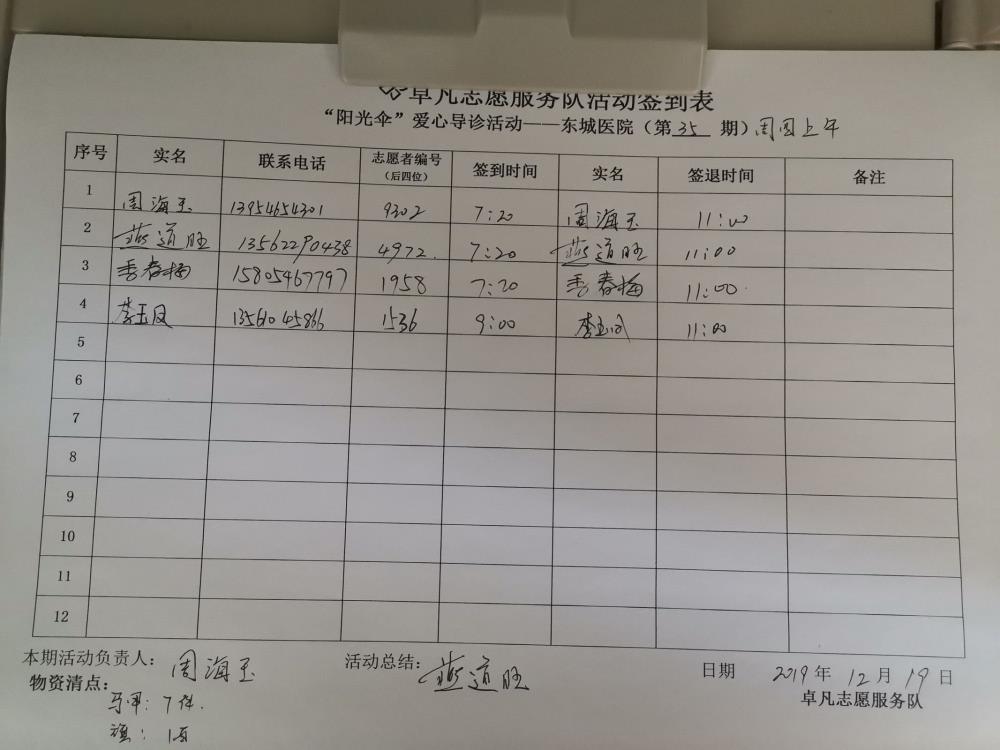 卓凡志愿服务队活动签到表
“阳光伞”爱心导诊活动——东城医院（第35期）周四上午
序号 实名 联系电话 志愿者编号（后四位） 签到时间 实名 签退时间 备注
1 周海玉 13954654301 9302 7:20 周海玉 11:00
2 燕道旺 13562290438 4972. 7:20 燕道旺 11:00
3 季春梅 15805467797 1958 7:20 季春梅 11:00
4 李玉凤 13561045866 1536 9:00 李玉凤 11:00
5
6
7
8
9
10
11
12
本期活动负责人：周海玉 活动总结：燕道旺 日期 2019年12月19日
物资清点： 卓凡志愿服务队
马甲：7件.
旗：1面